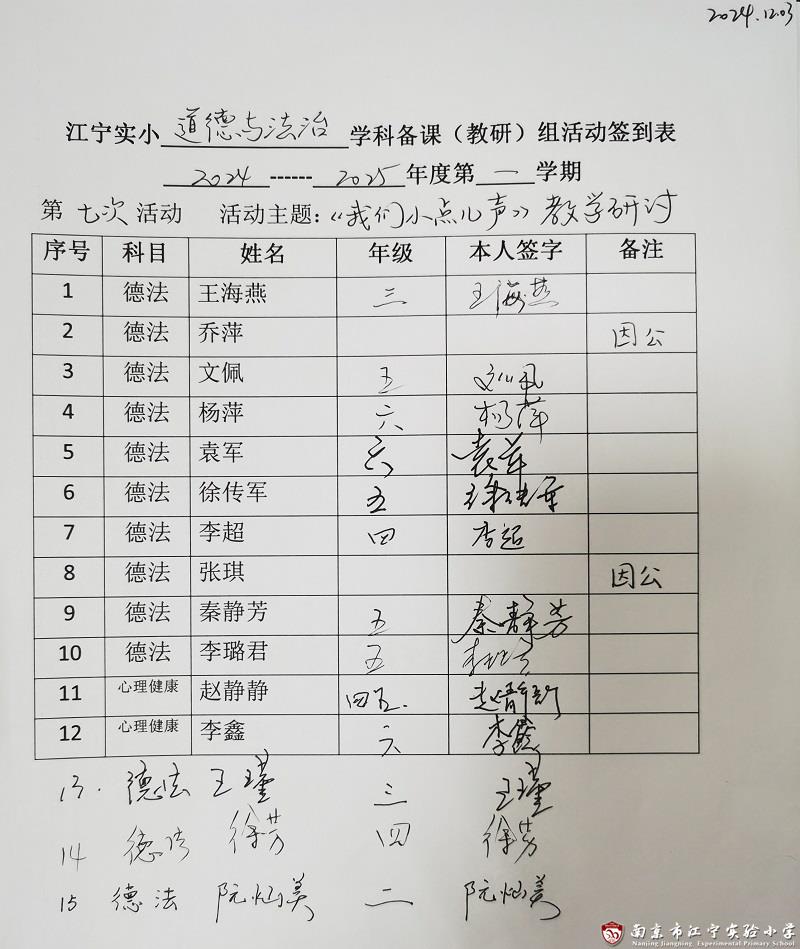 2024.12.03
江宁实小 道德与法治 学科备课（教研）组活动签到表
2024------2025年度第一学期
第七次活动 活动主题：《我们小点儿声》教学研讨
序号 科目 姓名 年级 本人签字 备注
1 德法 王海燕 三 王海燕
2 德法 乔萍 因公
3 德法 文佩 五 文佩
4 德法 杨萍 六 杨萍
5 德法 袁军 六 袁军
6 德法 徐传军 五 徐传军
7 德法 李超 四 李超
8 德法 张琪 因公
9 德法 秦静芳 五 秦静芳
10 德法 李璐君 五 李璐君
11 心理健康 赵静静 四五. 赵静静
12 心理健康 李鑫 六 李鑫
13. 德法 王瑾 三 王瑾
14 德法 徐芳 四 徐芳
15 德法 阮灿美 二 阮灿美
南京市江宁实验小学
Nanjing Jiangning Experimental Primary School